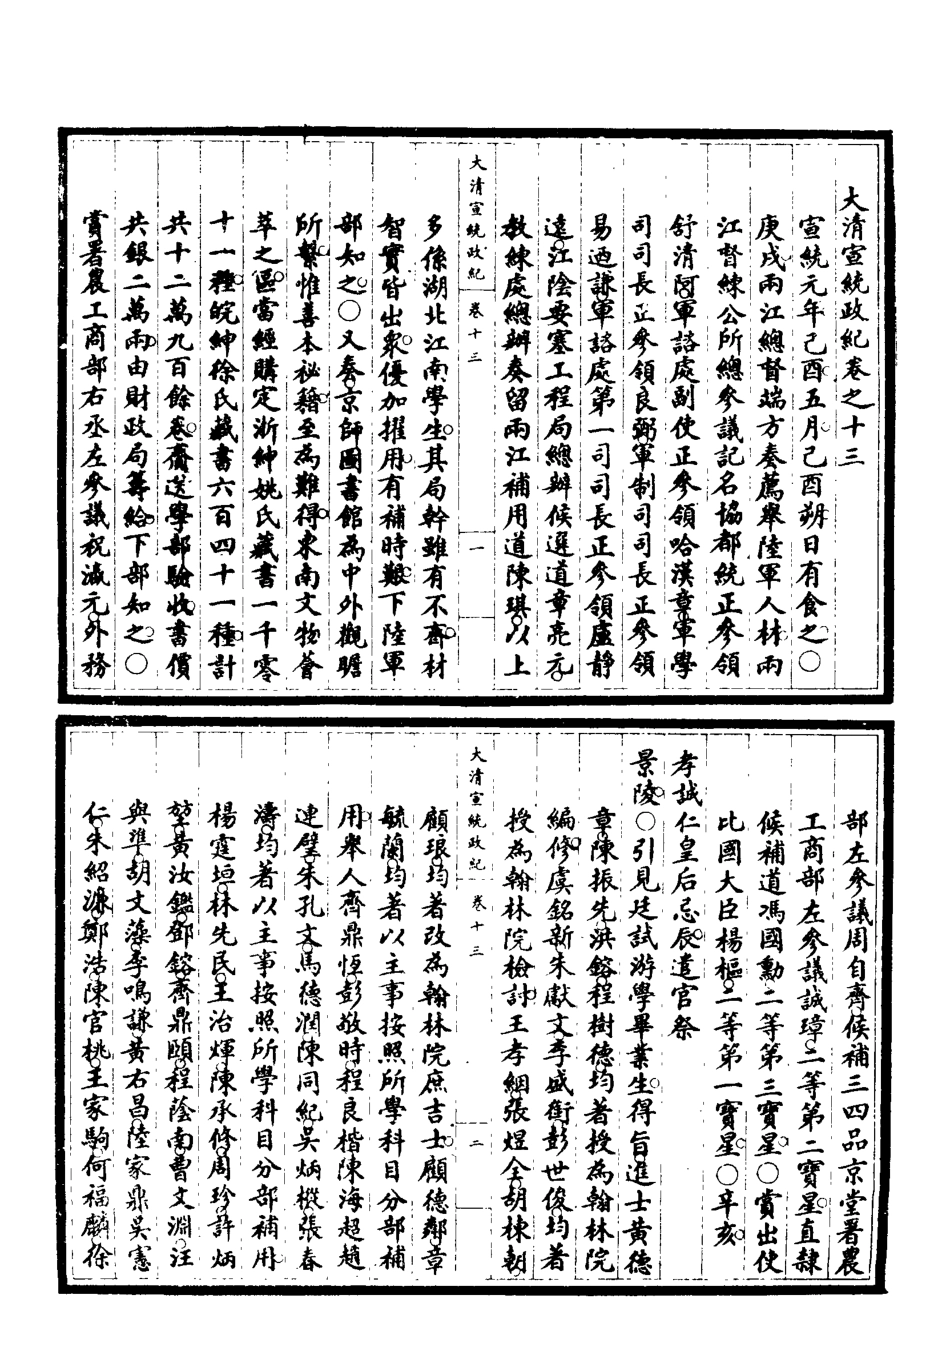 大清宣統政紀卷之十三
宣統元年己酉五月己酉朔日有食之○
庚戌兩江總督端方奏薦舉陸軍人材兩
江督練公所總參議記名協都統正參領
舒清阿軍諮處副使正參領哈漢章軍學
司司長正參領良弼軍制司司長正參領
易迺謙軍諮處第一司司長正參領盧靜
遠江陰要塞工程局總辦候選道章亮元
教練處總辦奏留兩江補用道陳琪以上
大清宣統政紀 卷十三 一
多係湖北江南學生其局幹雖有不齊材
智實皆出衆優加擢用有補時艱下陸軍
部知之○又奏京師圖書館為中外觀瞻
所繫惟善本祕籍至為難得東南文物薈
萃之區當經購定浙紳姚氏藏書一千零
十一種皖紳徐氏藏書六百四十一種計
共十二萬九百餘卷齎送學部驗收書價
共銀二萬兩由財政局籌給下部知之○
賞署農工商部右丞左參議祝瀛元外務
部左參議周自齊候補三四品京堂署農
工商部左參議誠璋二等第二寶星直隸
候補道馮國勳二等第三寶星○賞出使
比國大臣楊樞二等第一寶星○辛亥
孝誠仁皇后忌辰遣官祭
景陵○引見廷試游學畢業生得旨進士黃德
章陳振先洪鎔程樹德均著授為翰林院
編修虞銘新朱獻文李盛銜彭世俊均著
授為翰林院檢討王孝綱張煜全胡棟朝
大清宣統政紀 卷十三 二
顧琅均著改為翰林院庶吉士顧德鄰章
毓蘭均著以主事按照所學科目分部補
用舉人齊鼎恆彭敬時程良楷陳海超趙
連璧朱孔文馬德潤陳同紀吳炳樅張春
濤均著以主事按照所學科目分部補用
楊霆垣林先民王治煇陳承修周珍許炳
堃黃汝鑑鄧鎔齊鼎頤程蔭南曹文淵汪
與準胡文藻李鳴謙黃右昌陸家鼎吳憲
仁朱紹濂鄭浩陳官桃王家駒何福麟徐